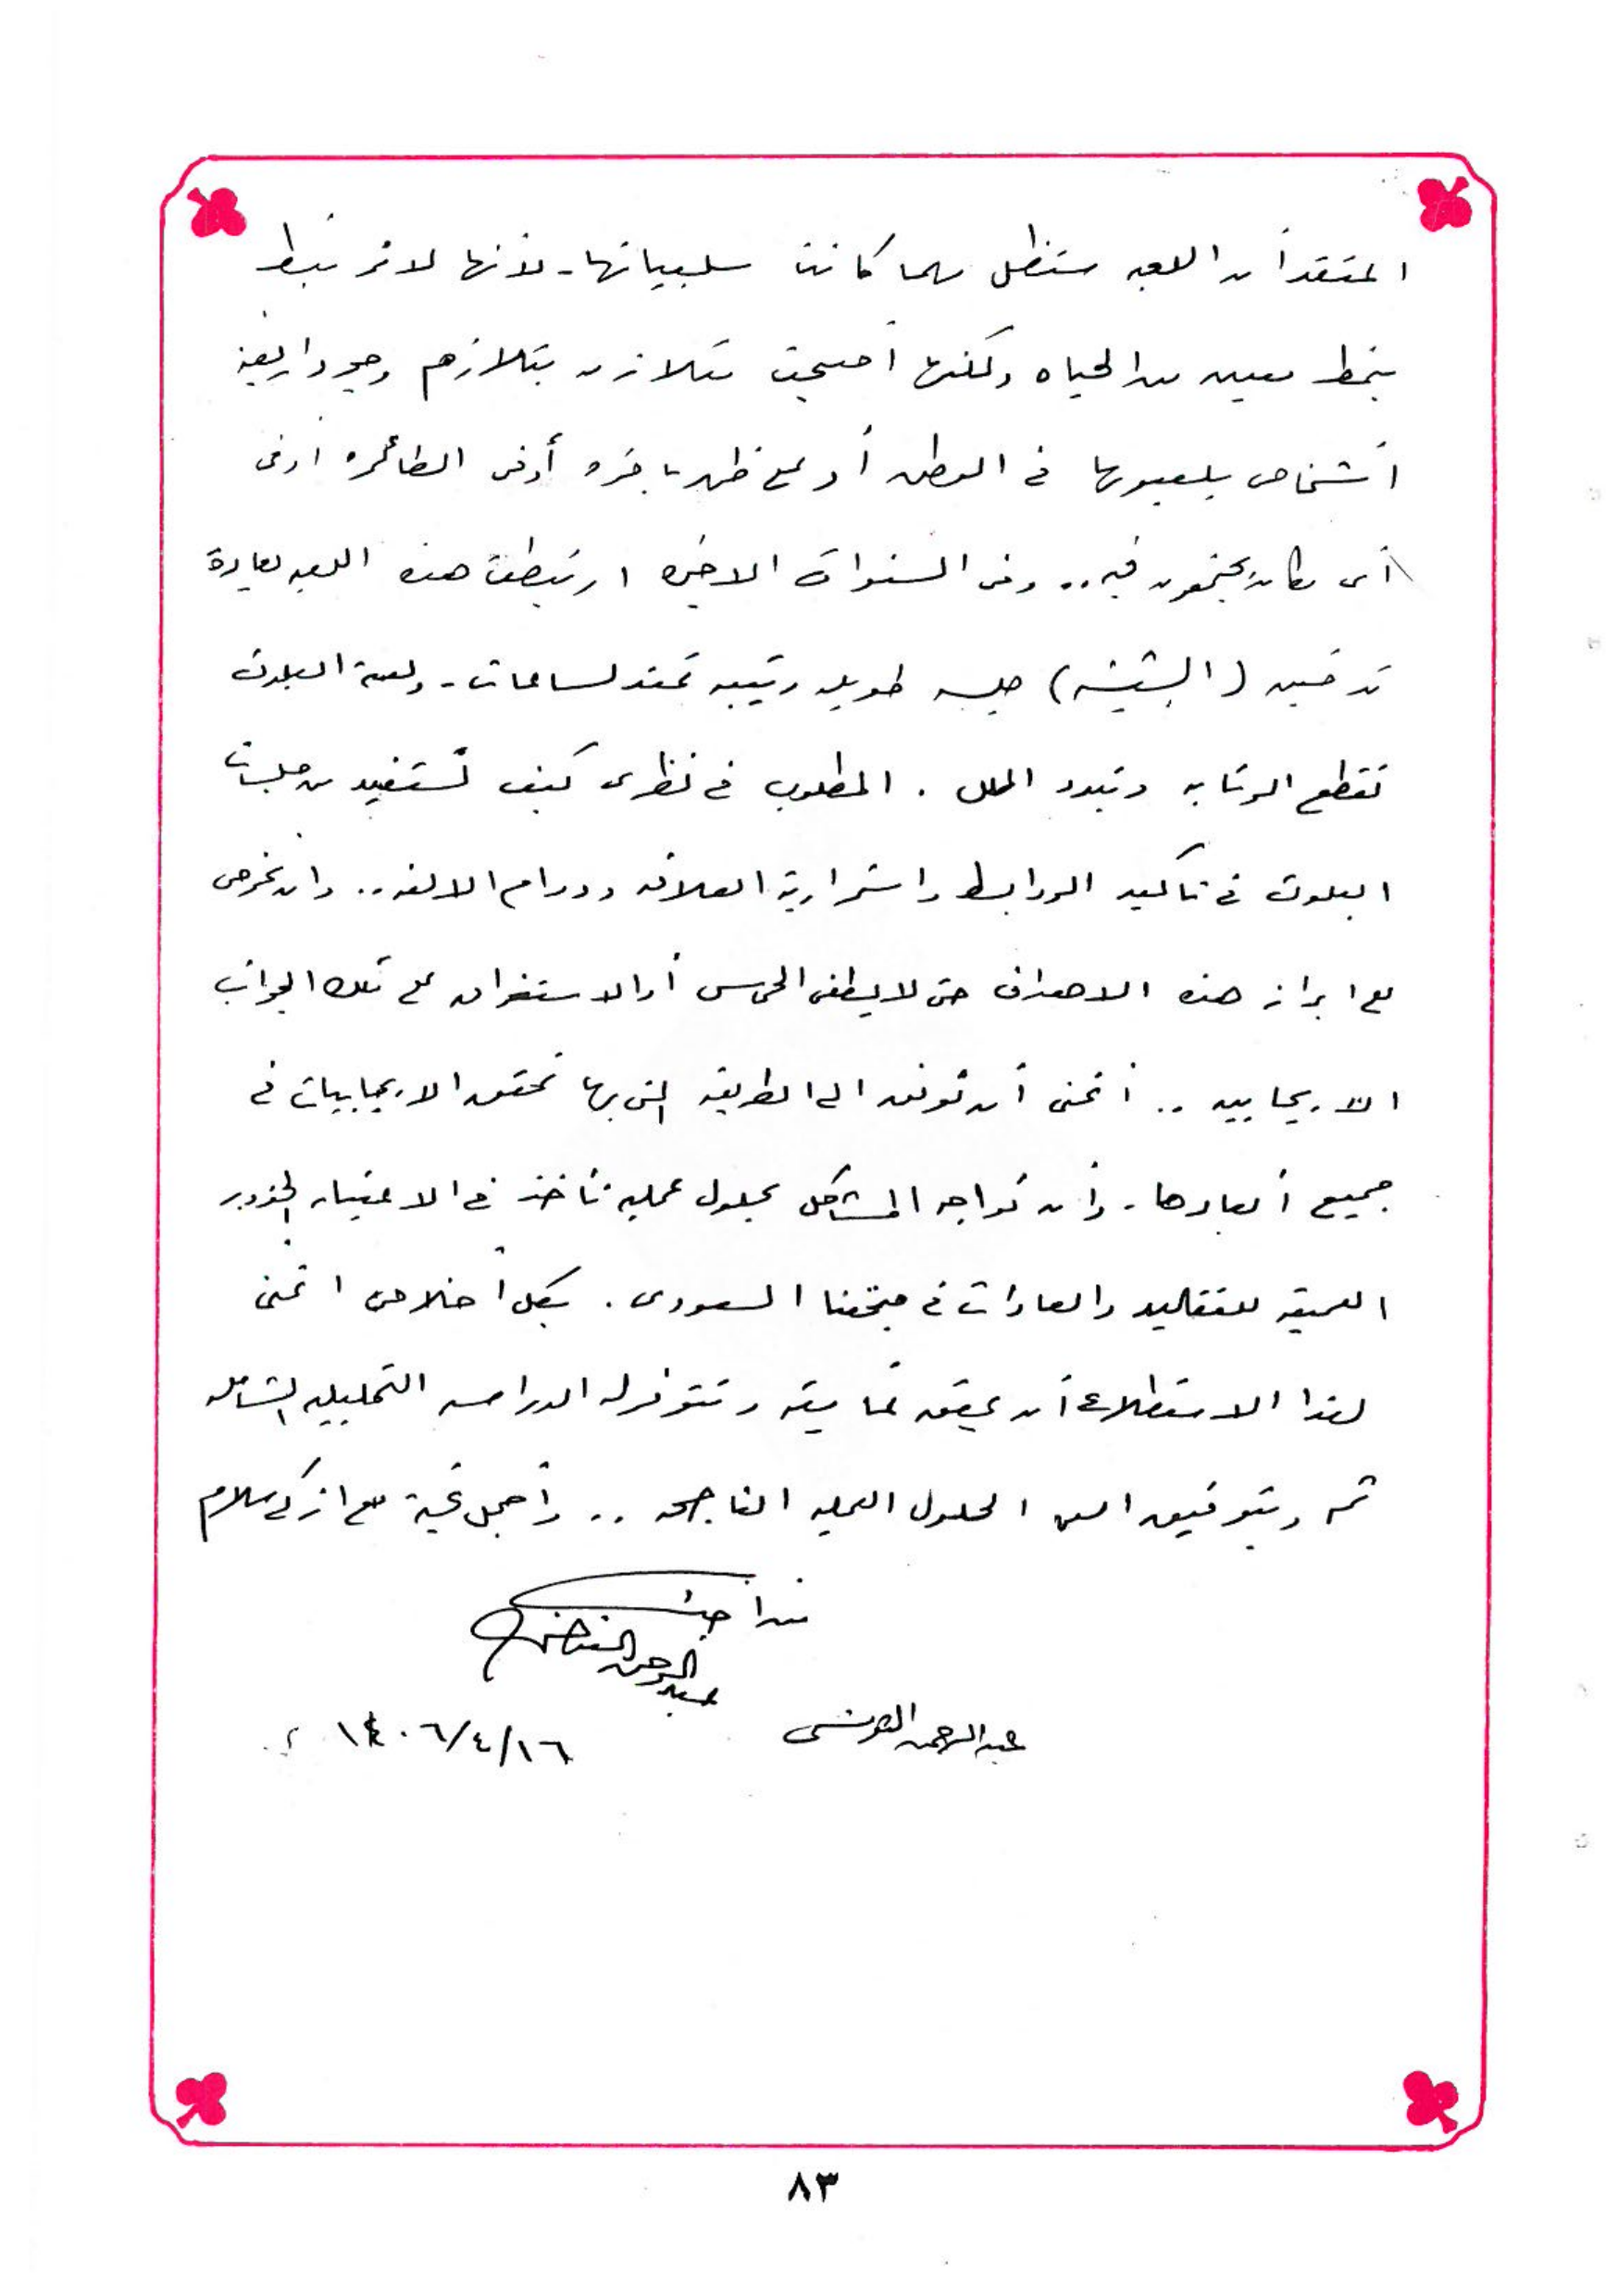 المعتقد أن اللعبه ستظل مهما كانت سلبياتها - لأنها لا ترتبط
بنمط معين من الحياه ولكنها أصبحت تتلازم بتلازم وجود اربعة
أشخاص يلعبونها في الوطن أو على ظهر باخره أو في الطائره اوفى
أى مكان يجتمعون فيه .. وفى السنوات الاخيره ارتبطت هذه اللعبه بعادة
تدخين (الشيشه) جلسه طويله رتيبه تمتد لساعات - ولعبة البلوت
تقطع الرتابه وتبدد الملل . المطلوب في نظرى كيف نستفيد من جلسات
البلوت في تأكيد الروابط واستمرارية العلاقه ودوام الالفه .. وان نحرص
على ابراز هذه الاهداف حتى لا يطغى الحماس أو الاستغراق على تلك الجوانب
الايجابيه .. أتمنى أن نوفق الى الطريقه التى بها تتحقق الايجابيات في
جميع أبعادها - وأن نواجه المشاكل بحلول عمليه تأخذ في الاعتبار الجذور
العميقه للتقاليد والعادات في مجتمعنا السعودى . بكل اخلاص اتمنى
لهذا الاستطلاع أن يحقق غايته وتتوفر له الدراسه التحليليه الشامله
ثم وبتوفيق الله الحلول العمليه الناجحه .. وأجمل تحية مع ازكى سلام
من اخيك
عبدالرحمن التونسى
١٤٠٦/٤/١٦
٨٣